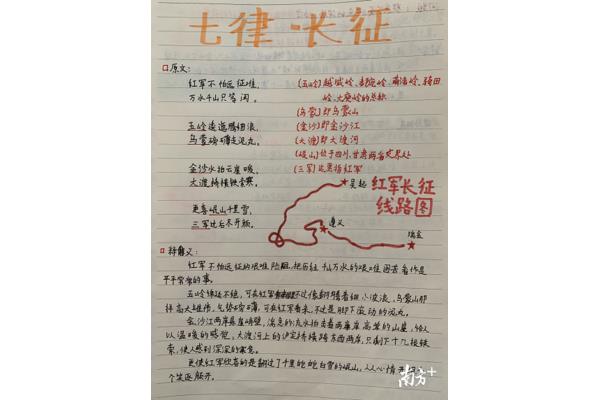 七律·长征
原文:
红军不怕远征难,
万水千山只等闲。
五岭逶迤腾细浪,
乌蒙磅礴走泥丸。
金沙水拍云崖暖,
大渡桥横铁索寒。
更喜岷山千里雪,
三军过后尽开颜。
(五岭)越城岭、都庞岭、萌渚岭、骑田
岭、大庾岭的总称
(乌蒙)即乌蒙山
(金沙)即金沙江
(大渡)即大渡河
(岷山)位于四川、甘肃两省交界处
(三军)这里指红军
红军长征
线路图
吴起
遵义
瑞金
释义:
红军不怕远征的艰难险阻,把历经千山万水的艰难困苦看作是
平平常常的事。
五岭绵延不绝,可在红军不过像翻腾着细小波浪,乌蒙山那
样高大雄伟,气势磅礴,可在红军看来,不过是脚下滚动的泥丸。
金沙江两岸悬崖峭壁,湍急的流水拍击着两岸高耸的山崖,给人
以温暖的感觉,大渡河上的泸定桥横跨东西两岸,只剩下十几根铁
索,使人感到深深的寒意。
更使红军欣喜的是翻过了千里皑皑白雪的岷山,人人心情
个笑逐颜开。
南方+